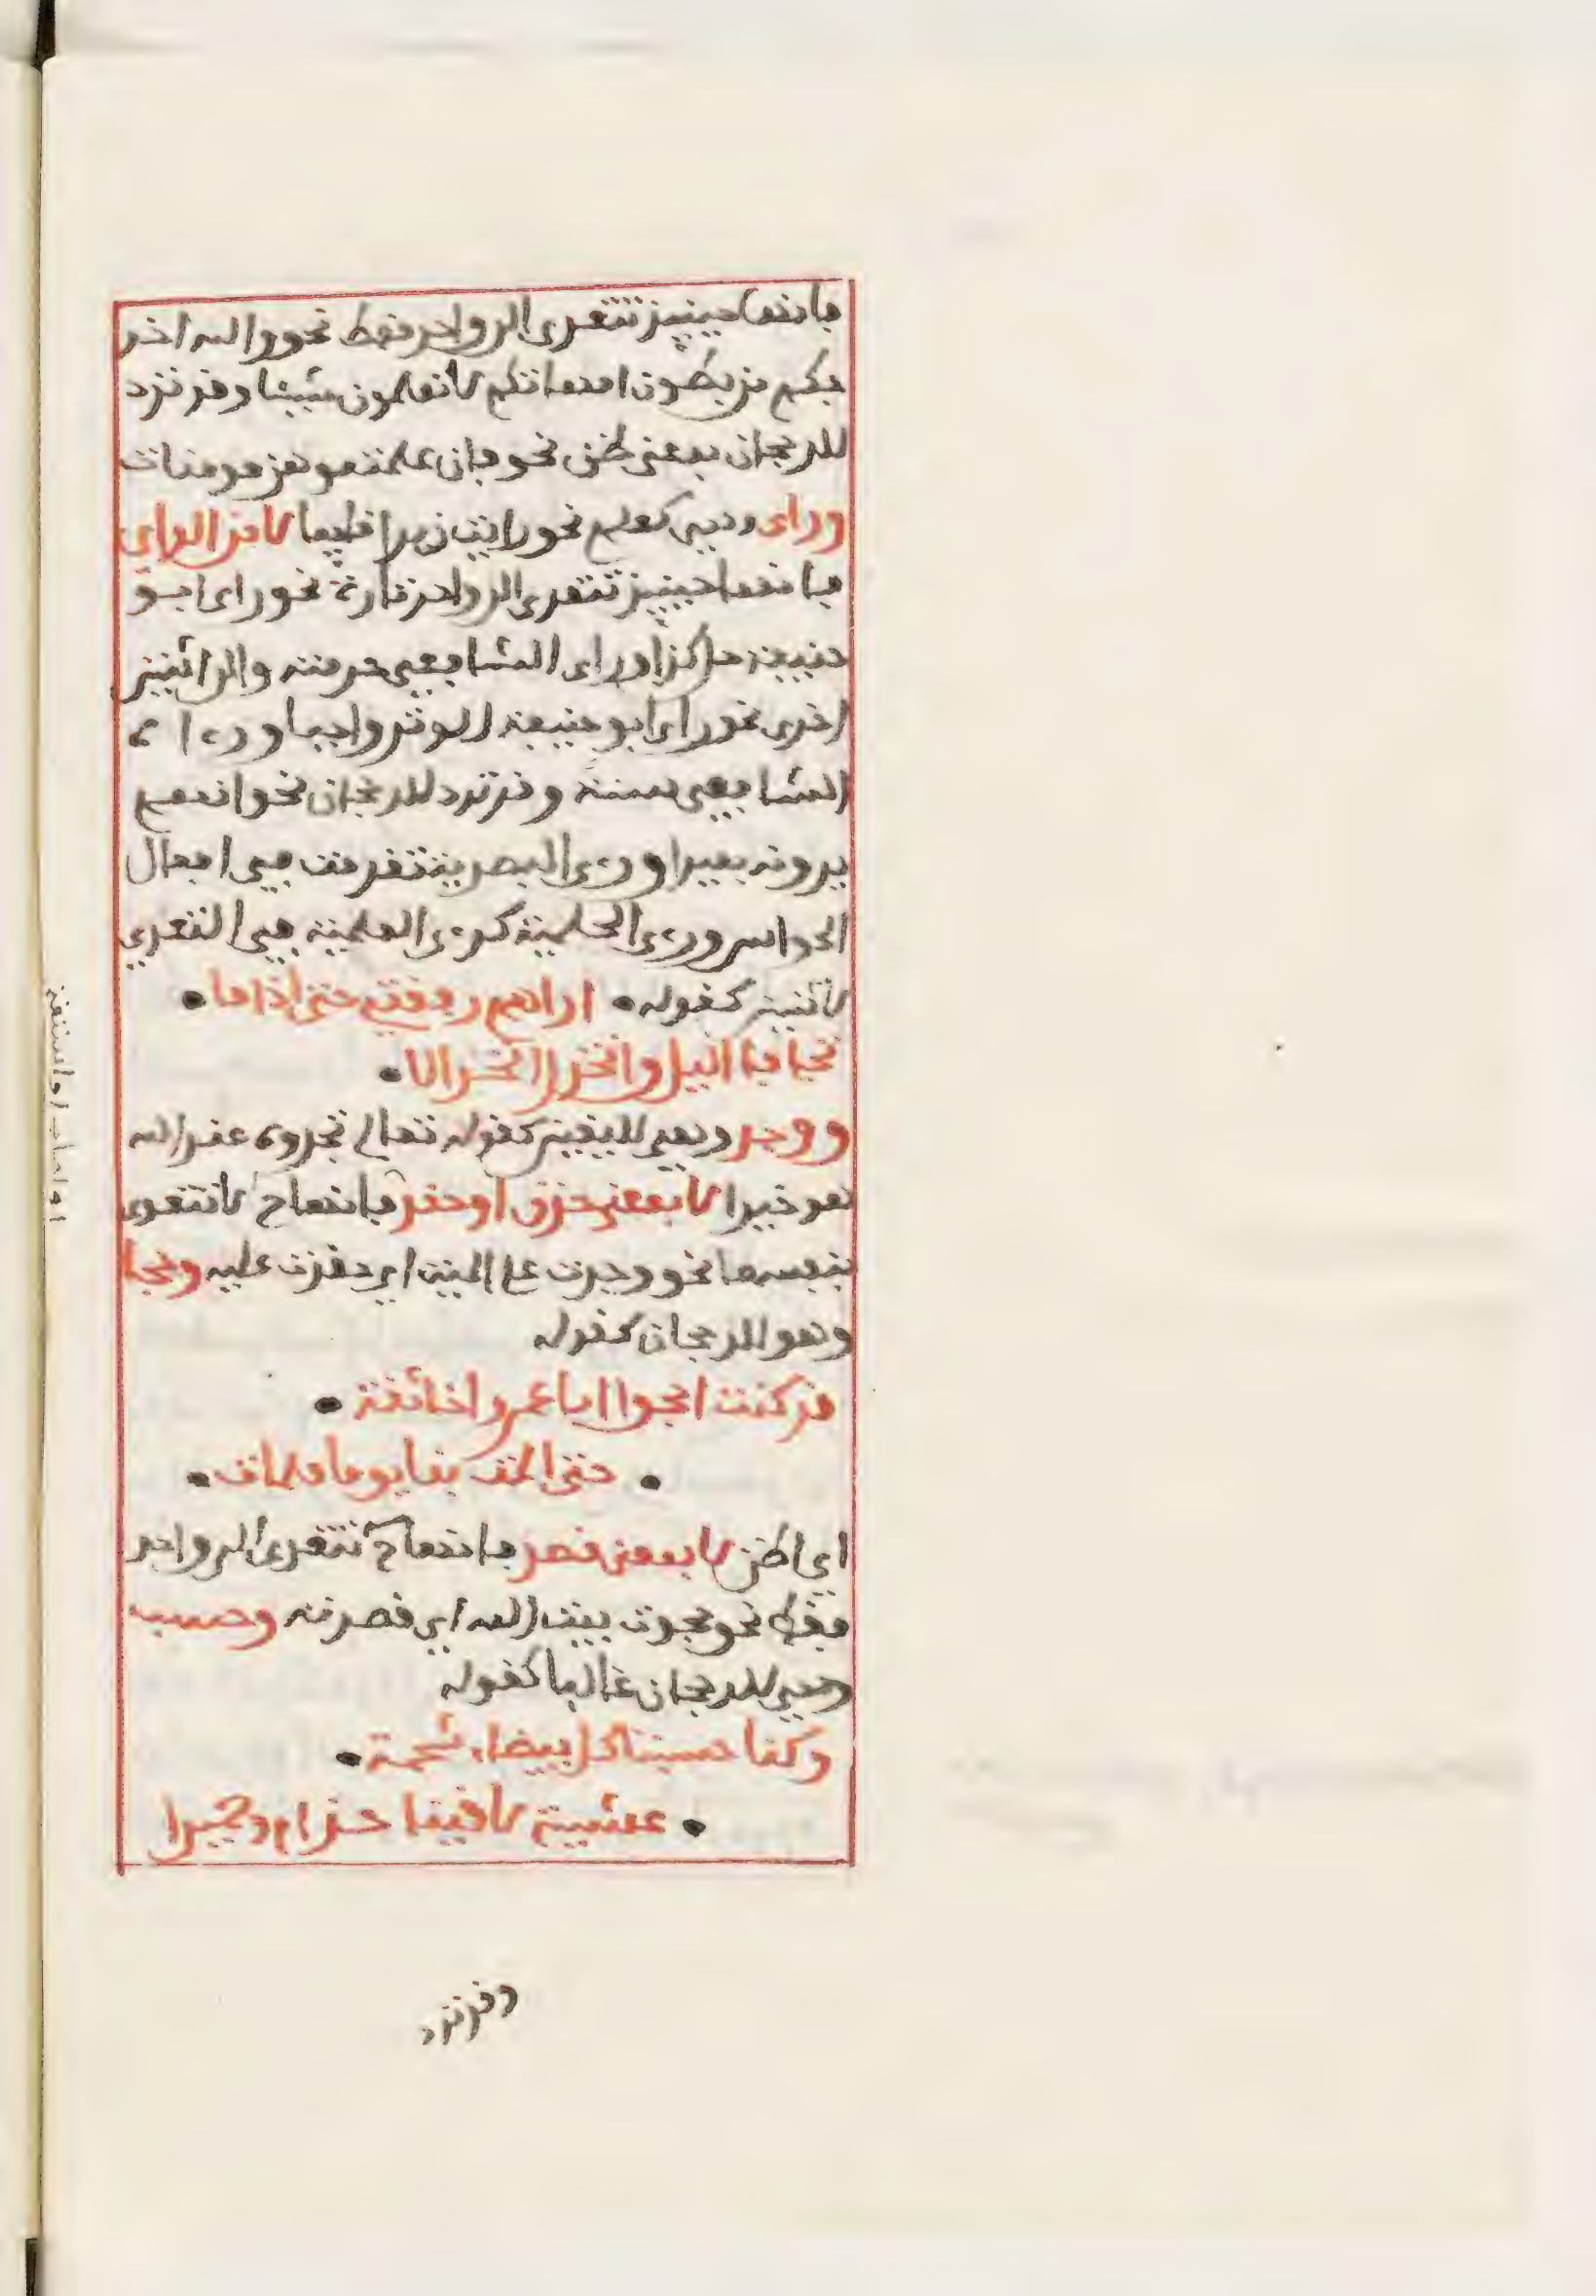 فانها حينئذ تتعدى الى واحد فقط نحو والله اخر
جكم من بطون امهاتكم لا تعلمون شيئا وقد ترد
للرجحان بمعنى ظن نحو فان علمتموهن مومنات
ورأى وهي كعلم نحو رايت زيدا قايما لا من الراي
فانها حينئذ تتعدى الى واحد تارة نحو راى ابو
حنيفة حل كذا وراى الشافعي حرمته والى اثنين
اخرى نحو راى ابو حنيفة الوتر واجبا ورءاه
الشافعي سنة وقد ترد للرجحان نحو انهم
يرونه بعيدا ورءى البصرية تقدمت في افعال
الحواس ورءى الحلمية كرءى العلمية في التعدي
لاثنين كقوله • اراهم رفقتي حتى اذا ما •
تجافا اليل وانخزل انخزالا •
ووجد وهي لليقين كقوله تعالى تجدوه عند الله
هو خيرا لا بمعنى حزن او حقد فانها ح لا تتعدى
بنفسها نحو وجدت على الميت اي حقدت عليه وحجا
وهو للرجحان كقوله
قد كنت احجوا ابا عمرو اخا ثقة •
• حتى المت بنا يوما ملمات •
اي اظن لا بمعنى قصد فانها ح تتعدى الى واحد
فقط نحو حجوت بيت الله اي قصدته وحسب
وهي للرجحان غالبا كقوله
وكنا حسبنا كل بيضاء شحمة •
• عشية لاقينا جذام وحميرا
وقد ترد